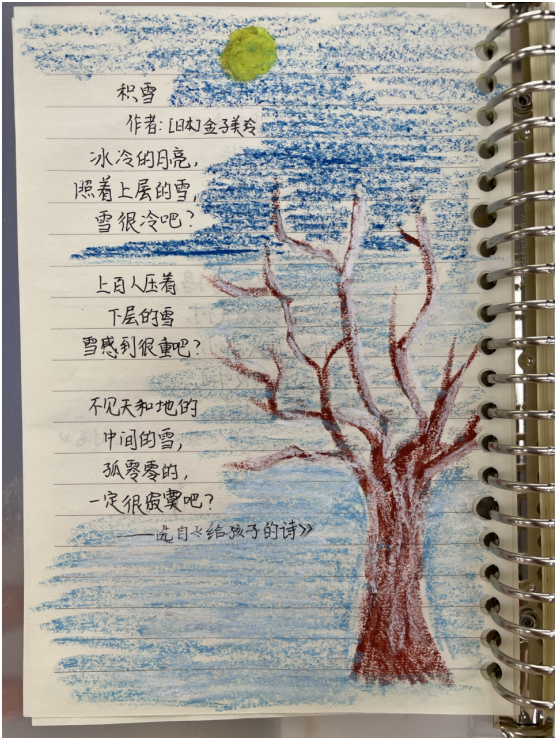 积雪
作者:[日本]金子美玲
冰冷的月亮,
照着上层的雪,
雪很冷吧?
上百人压着
下层的雪
雪感到很重吧?
不见天和地的
中间的雪,
孤零零的,
一定很寂寞吧?
——选自《给孩子的诗》